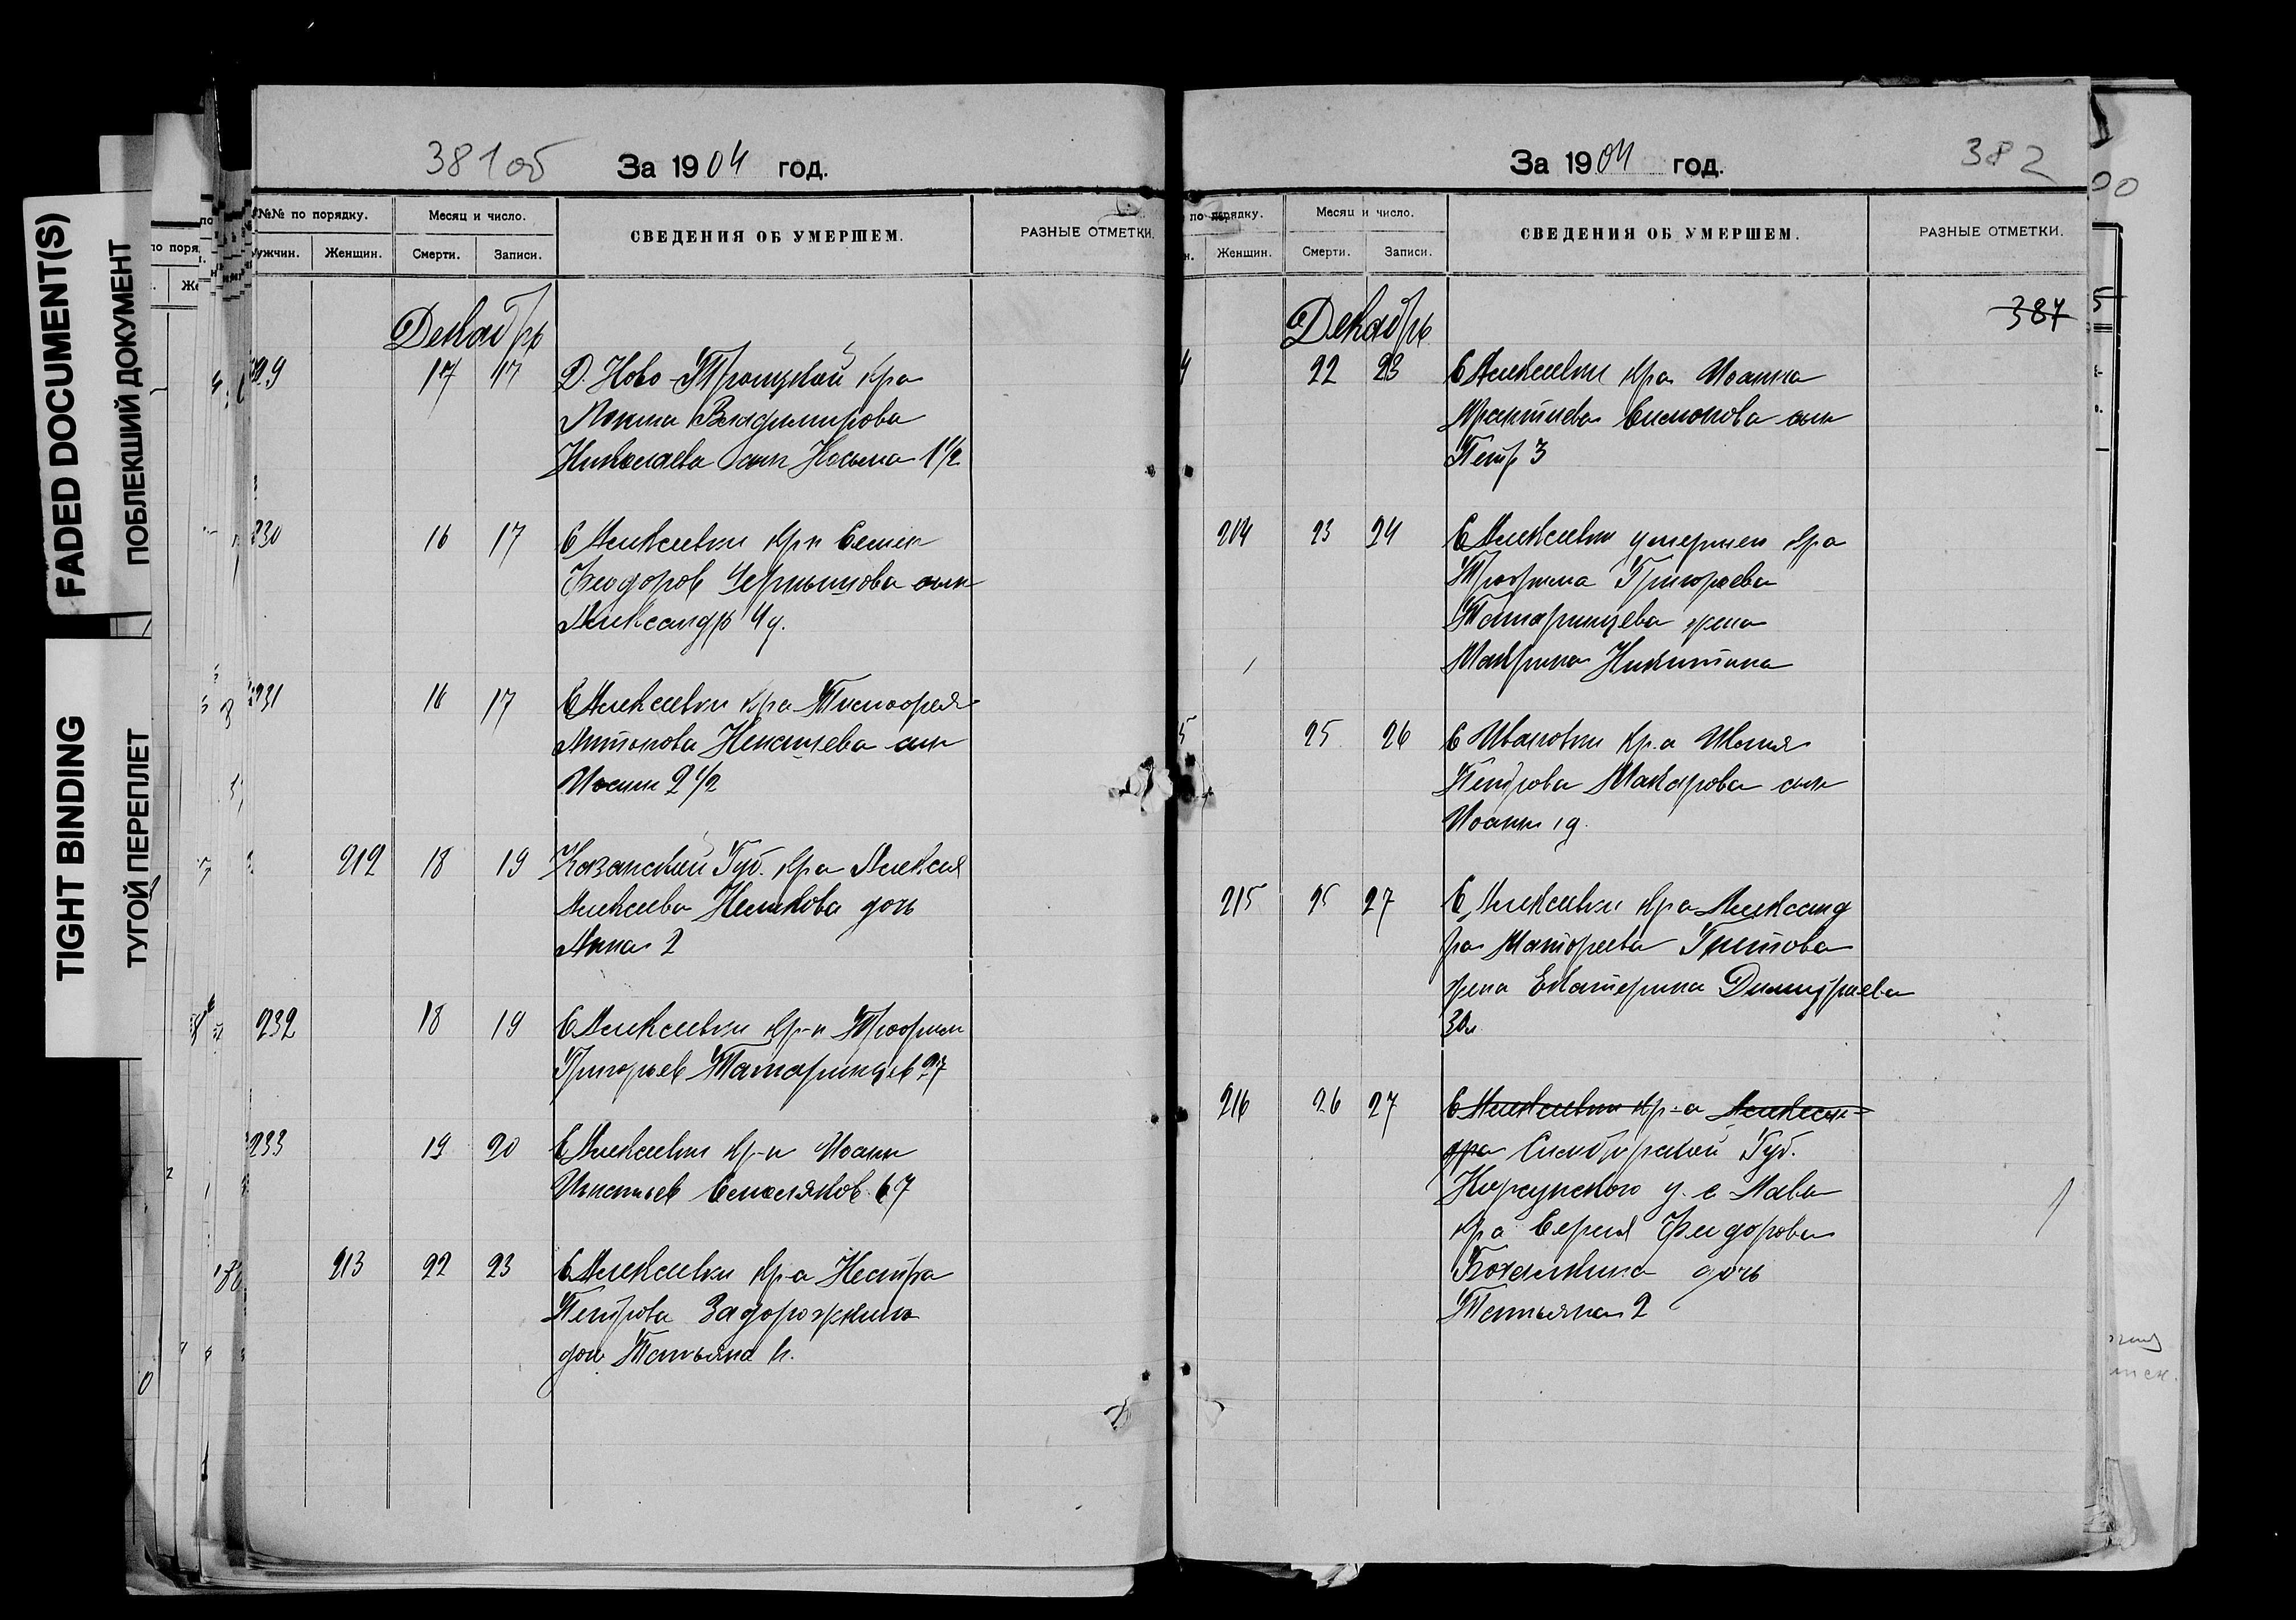 FADED DOCUMENT(S)
ПОБЛЕКШИЙ ДОКУМЕНТ
TIGHT BINDING
ТУГОЙ ПЕРЕПЛЕТ
381об За 1904 год.
№№ по порядку. Месяц и число. СВЕДЕНИЯ ОБ УМЕРШЕМ. РАЗНЫЕ ОТМЕТКИ.
Женщин. Смерти. Записи.
Декабрь
229 17 17 Д. Ново-Троицкой кр-а
Владимирова
Николаева сын Косьма 1½
230 16 17 С Алексеевки кр-н Семен
Феодоров Чернышова сын
Александр 4 д.
231 16 17 С Алексеевки кр-а Тимофея
Антонова сын
Иоанн 2½
212 18 19 Казанской Губ. кр-а Алексея
Алексеева дочь
Анна 2
232 18 19 С Алексеевки кр-н Трофим
Григорьев Татаринцев 27
233 19 20 С Алексеевки кр-н Иоанн
Игнатьев 67
213 22 23 С Алексеевки кр-а
Петрова Задорожкина
дочь Татьяна
За 1904 год. 382
по порядку. Месяц и число. СВЕДЕНИЯ ОБ УМЕРШЕМ. РАЗНЫЕ ОТМЕТКИ.
Женщин. Смерти. Записи.
Декабрь 387
22 23 С Алексеевки кр-а Иоанна
Симонова сын
Петр 3
214 23 24 С Алексеевки умершего кр-а
Трофима Григорьева
Татаринцева жена
Никитина
25 26 С Ивановки кр-а
Петрова Макарова сын
Иоанн 1 д.
215 25 27 С Алексеевки кр-а Александ
ра Матфеева
жена Екатерина Димитриева
30 л
216 26 27 С Алексеевки кр-а Алексан-
дра Симбирской Губ.
Корсунского у. с Лава
кр-а Сергия Феодорова
дочь
Татьяна 2